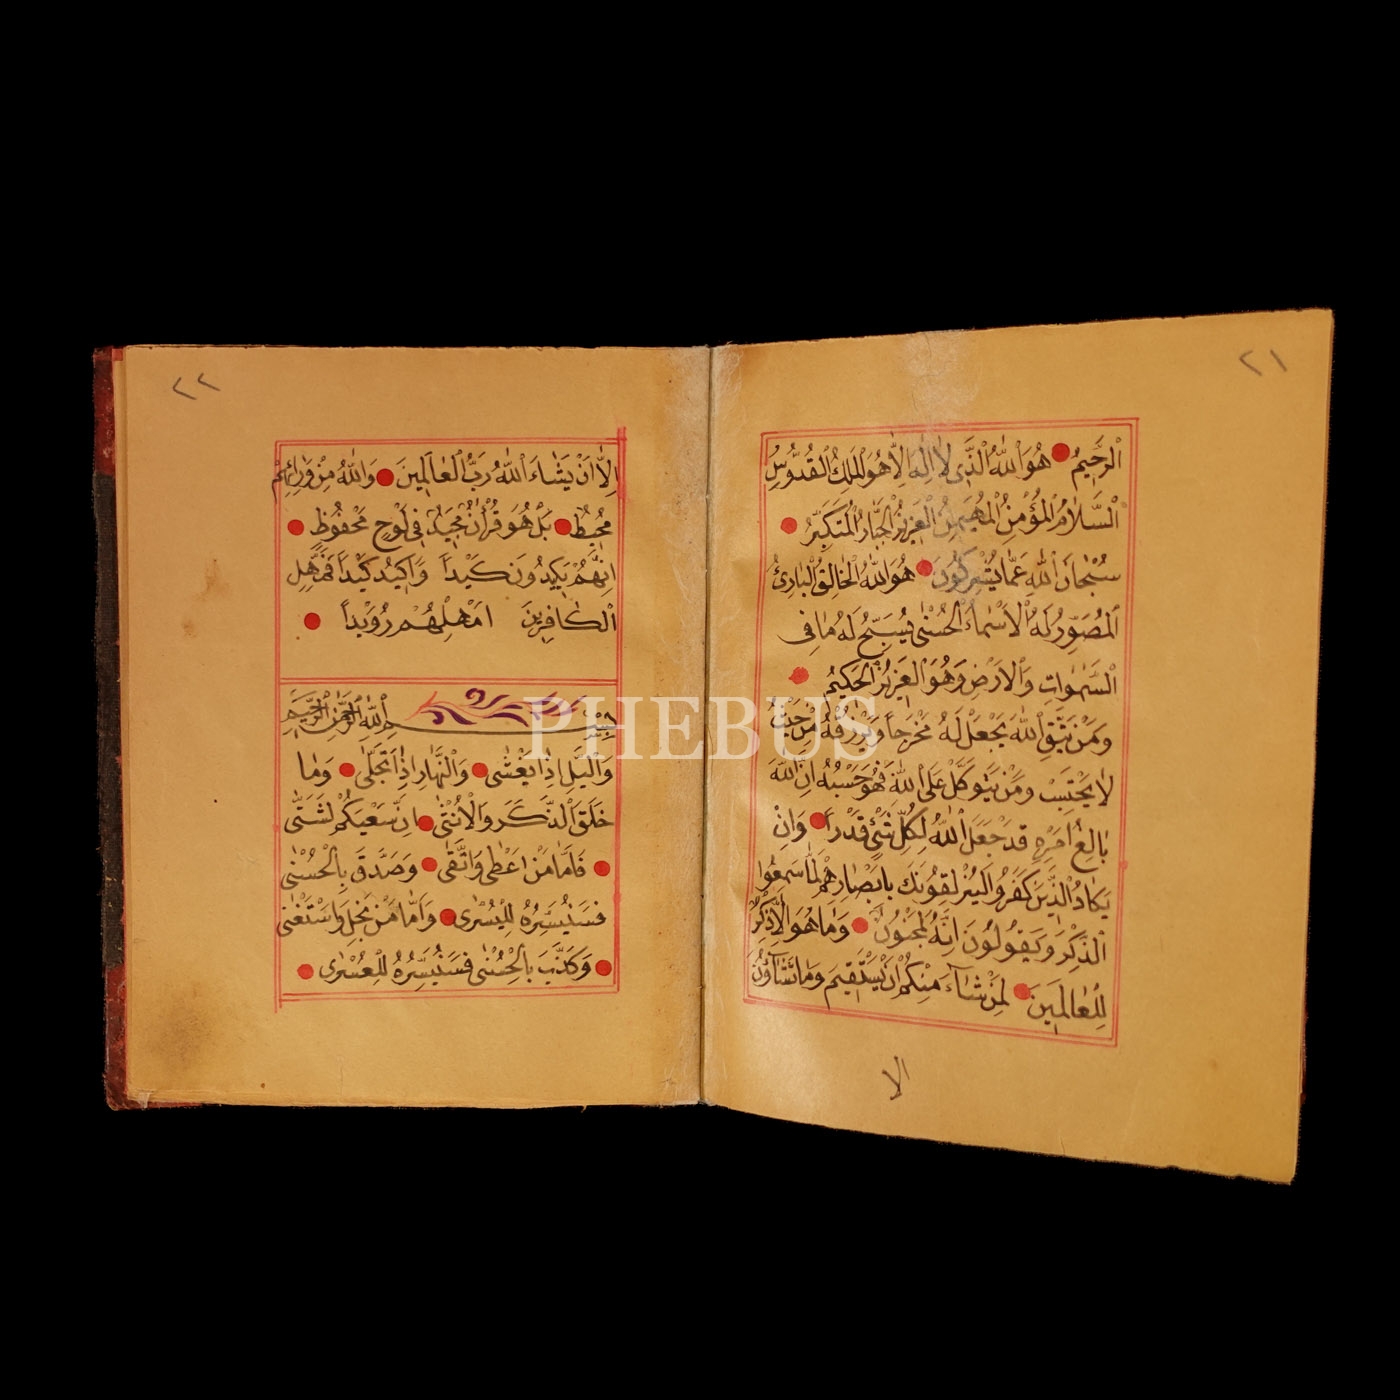 ٢١
الرَّحِيمُ هُوَ اللّٰهُ الَّذِى لَا اِلٰهَ اِلَّا هُوَ الْمَلِكُ الْقُدُّوسُ
السَّلَامُ الْمُؤْمِنُ الْمُهَيْمِنُ الْعَزِيزُ الْجَبَّارُ الْمُتَكَبِّرُ
سُبْحَانَ اللّٰهِ عَمَّا يُشْرِكُونَ هُوَ اللّٰهُ الْخَالِقُ الْبَارِئُ
الْمُصَوِّرُ لَهُ الْاَسْمَاءُ الْحُسْنٰى يُسَبِّحُ لَهُ مَا فِى
السَّمٰوَاتِ وَالْاَرْضِ وَهُوَ الْعَزِيزُ الْحَكِيمُ
وَمَنْ يَتَّقِ اللّٰهَ يَجْعَلْ لَهُ مَخْرَجاً وَيَرْزُقْهُ مِنْ حَيْثُ
لَا يَحْتَسِبْ وَمَنْ يَتَوَكَّلْ عَلَى اللّٰهِ فَهُوَ حَسْبُهُ اِنَّ اللّٰهَ
بَالِغُ اَمْرِهِ قَدْ جَعَلَ اللّٰهُ لِكُلِّ شَىْءٍ قَدْراً وَاِنْ
يَكَادُ الَّذِينَ كَفَرُوا لَيُزْلِقُونَكَ بِاَبْصَارِهِمْ لَمَّا سَمِعُوا
الذِّكْرَ وَيَقُولُونَ اِنَّهُ لَمَجْنُونٌ وَمَا هُوَ اِلَّا ذِكْرٌ
لِلْعَالَمِينَ لِمَنْ شَاءَ مِنْكُمْ اَنْ يَسْتَقِيمَ وَمَا تَشَاؤُنَ
الا
٢٢
اِلَّا اَنْ يَشَاءَ اللّٰهُ رَبُّ الْعَالَمِينَ وَاللّٰهُ مِنْ وَرَائِهِمْ
مُحِيطٌ بَلْ هُوَ قُرْاٰنٌ مَجِيدٌ فِى لَوْحٍ مَحْفُوظٍ
اِنَّهُمْ يَكِيدُونَ كَيْداً وَاَكِيدُ كَيْداً فَمَهِّلِ
الْكَافِرِينَ اَمْهِلْهُمْ رُوَيْداً
بِسْمِ اللّٰهِ الرَّحْمٰنِ الرَّحِيمِ
وَالَّيْلِ اِذَا يَغْشٰى وَالنَّهَارِ اِذَا تَجَلّٰى وَمَا
خَلَقَ الذَّكَرَ وَالْاُنْثٰى اِنَّ سَعْيَكُمْ لَشَتّٰى
فَاَمَّا مَنْ اَعْطٰى وَاتَّقٰى وَصَدَّقَ بِالْحُسْنٰى
فَسَنُيَسِّرُهُ لِلْيُسْرٰى وَاَمَّا مَنْ بَخِلَ وَاسْتَغْنٰى
وَكَذَّبَ بِالْحُسْنٰى فَسَنُيَسِّرُهُ لِلْعُسْرٰى
PHEBUS